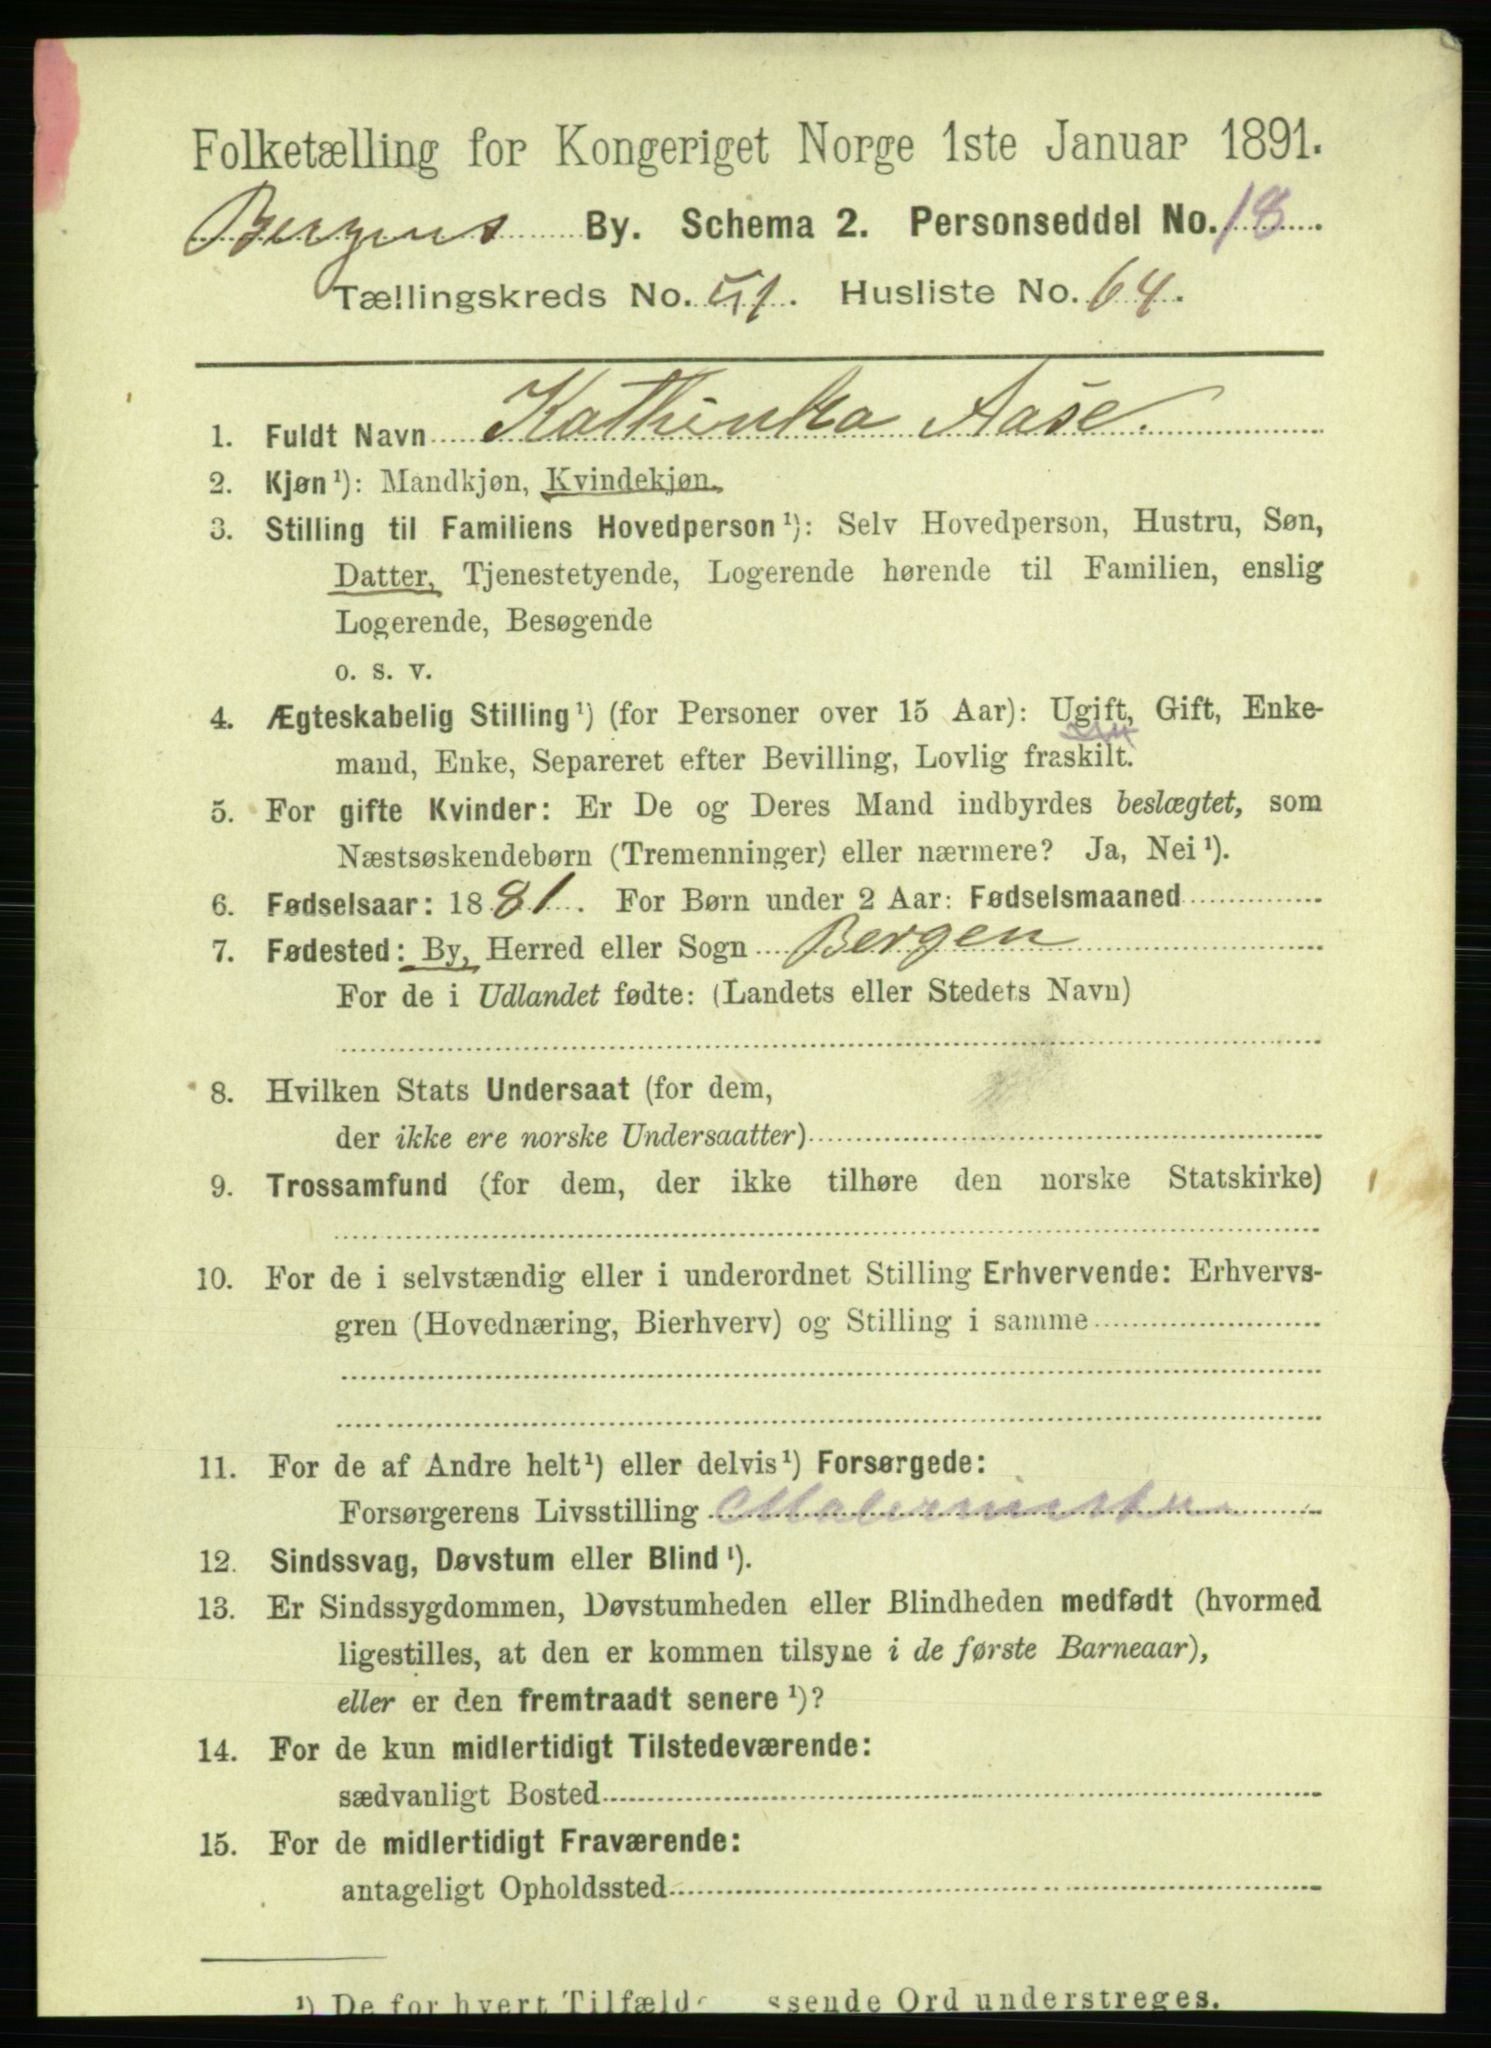 Folketælling for Kongeriget Norge 1ste Januar 1891.
Bergens By. Schema 2. Personseddel No. 18.
Tællingskreds No. 51. Husliste No. 64.
1. Fuldt Navn Kathinka Aase.
2. Kjøn¹): Mandkjøn, Kvindekjøn.
3. Stilling til Familiens Hovedperson¹): Selv Hovedperson, Hustru, Søn,
Datter, Tjenestetyende, Logerende hørende til Familien, enslig
Logerende, Besøgende
o. s. v.
4. Ægteskabelig Stilling¹) (for Personer over 15 Aar): Ugift, Gift, Enke-
mand, Enke, Separeret efter Bevilling, Lovlig fraskilt.
5. For gifte Kvinder: Er De og Deres Mand indbyrdes beslægtet, som
Næstsøskendebørn (Tremenninger) eller nærmere? Ja, Nei¹).
6. Fødselsaar: 1881. For Børn under 2 Aar: Fødselsmaaned
7. Fødested: By, Herred eller Sogn Bergen
For de i Udlandet fødte: (Landets eller Stedets Navn)
8. Hvilken Stats Undersaat (for dem,
der ikke ere norske Undersaatter)
9. Trossamfund (for dem, der ikke tilhøre den norske Statskirke)
10. For de i selvstændig eller i underordnet Stilling Erhvervende: Erhvervs-
gren (Hovednæring, Bierhverv) og Stilling i samme
11. For de af Andre helt¹) eller delvis¹) Forsørgede:
Forsørgerens Livsstilling Malermester
12. Sindssvag, Døvstum eller Blind¹).
13. Er Sindssygdommen, Døvstumheden eller Blindheden medfødt (hvormed
ligestilles, at den er kommen tilsyne i de første Barneaar),
eller er den fremtraadt senere¹)?
14. For de kun midlertidigt Tilstedeværende:
sædvanligt Bosted
15. For de midlertidigt Fraværende:
antageligt Opholdssted
¹) De for hvert Tilfælde ssende Ord understreges.